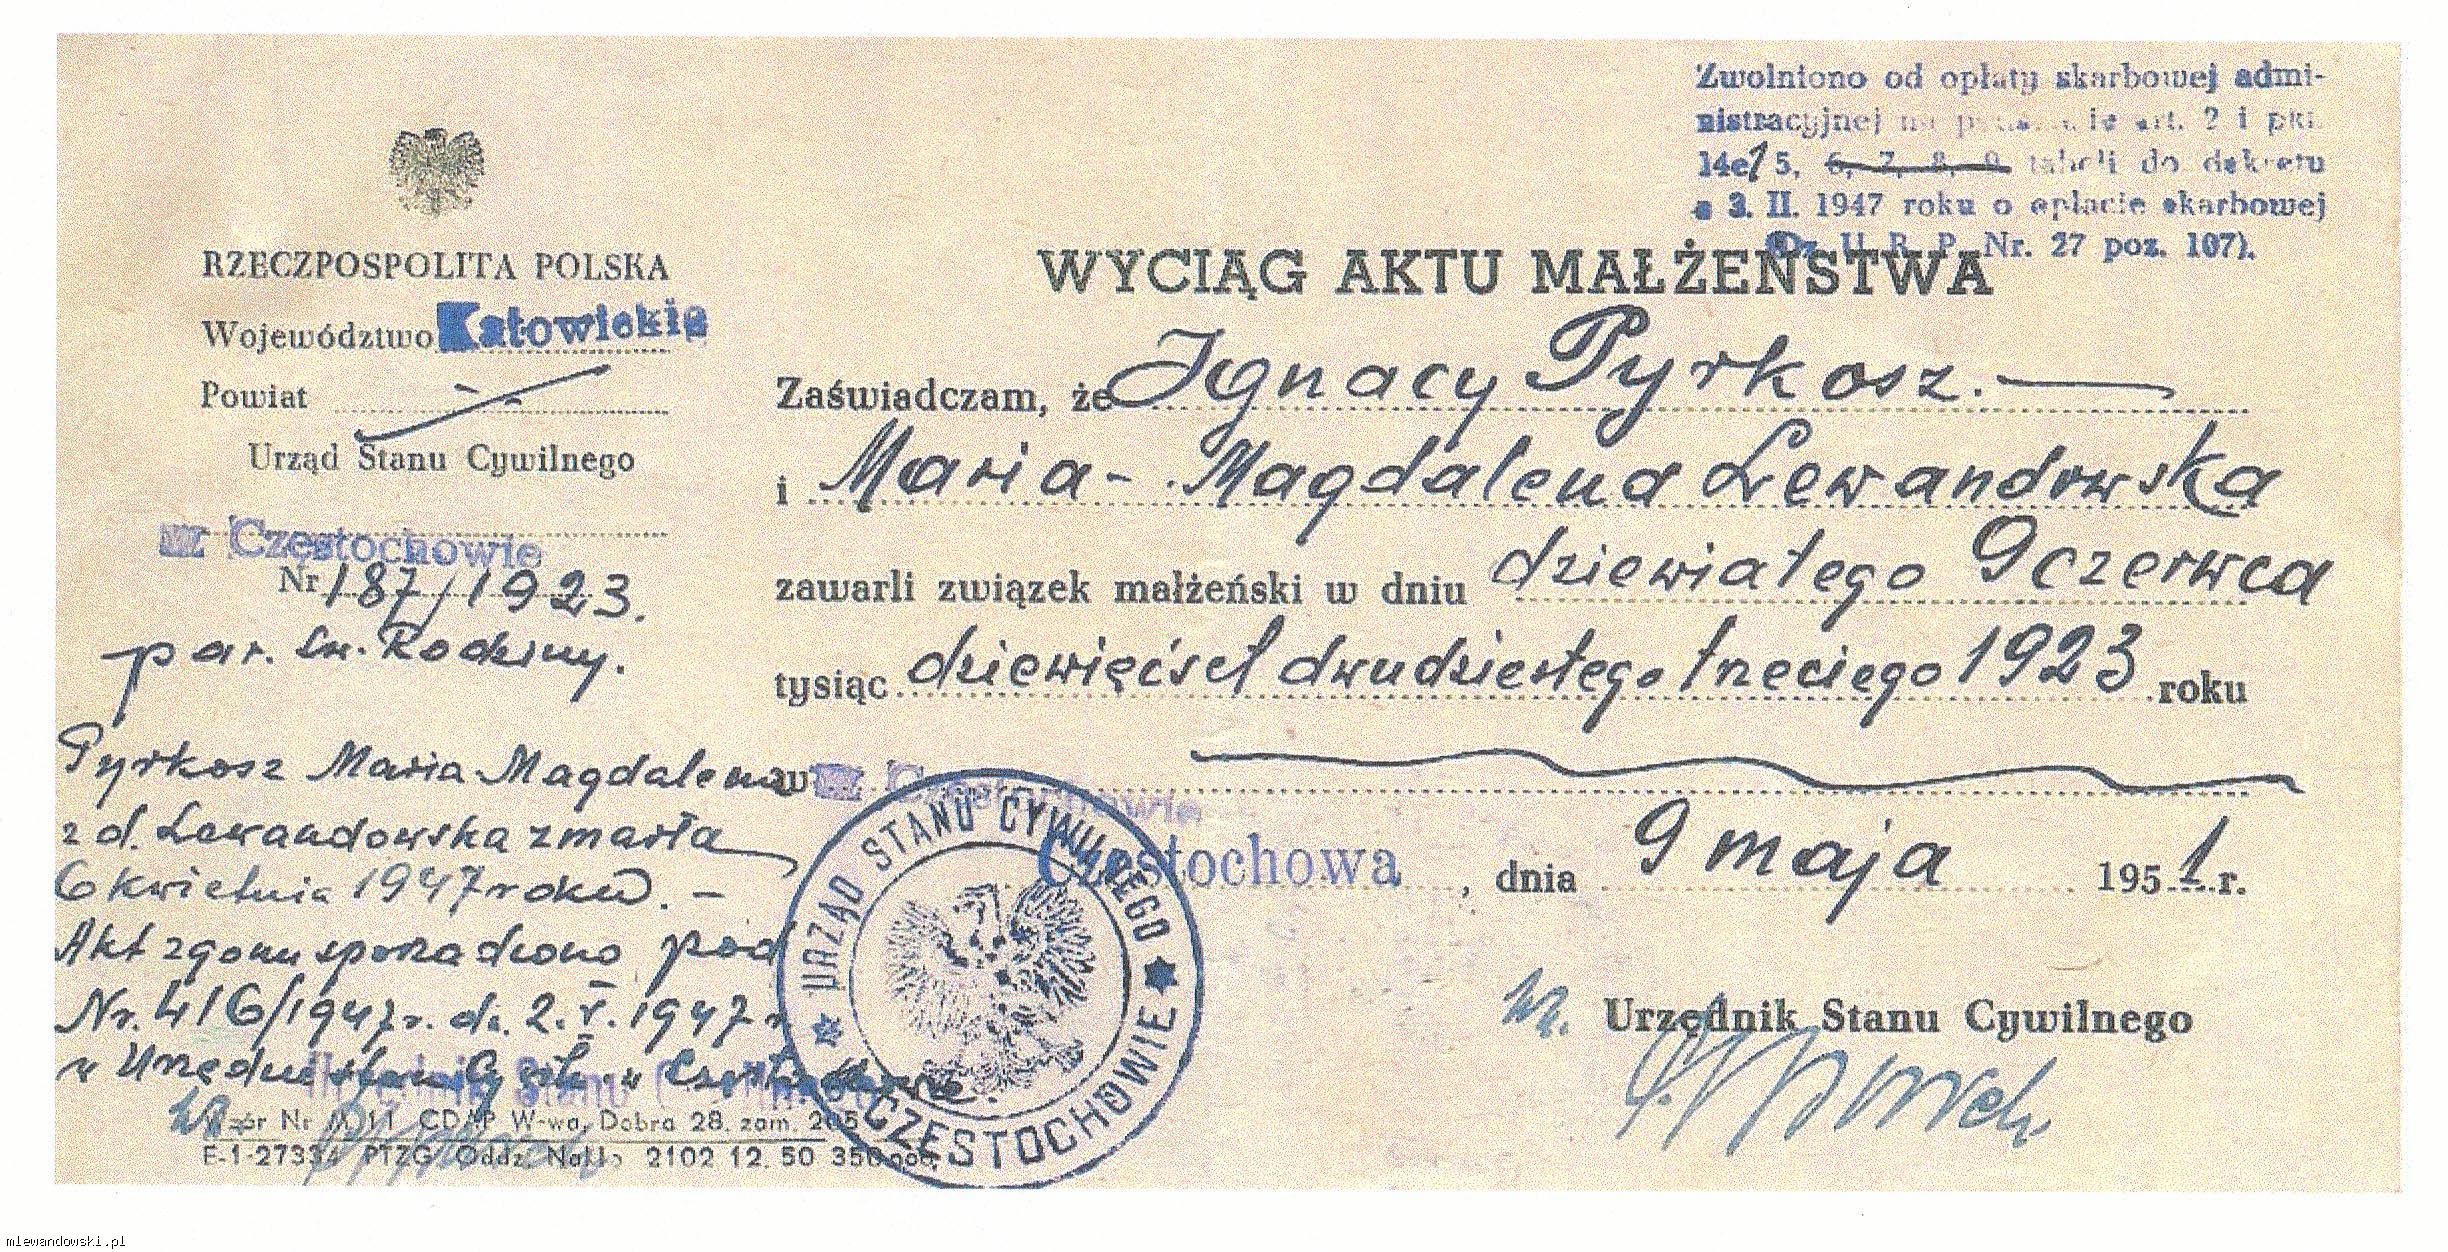 Zwolniono od opłaty skarbowej admi-
nistracyjnej na podstawie art. 2 i pkt.
14e) 5, 6, 7, 8, 9 tabeli do dekretu
3. II. 1947 roku o opłacie skarbowej
(Dz. U. R. P. Nr. 27 poz. 107).
RZECZPOSPOLITA POLSKA
Województwo Katowickie
Powiat
Urząd Stanu Cywilnego
w Częstochowie
Nr 187/1923.
par. św. Rodziny.
WYCIĄG AKTU MAŁŻEŃSTWA
Zaświadczam, że Ignacy Pyrkosz.
i Maria - Magdalena Lewandowska
zawarli związek małżeński w dniu dziewiątego 9 czerwca
tysiąc dziewięćset dwudziestego trzeciego 1923 roku
w w Częstochowie
Częstochowa, dnia 9 maja 1951 r.
wz. Urzędnik Stanu Cywilnego
Pyrkosz Maria Magdalena
z d. Lewandowska zmarła
6 kwietnia 1947 roku. -
Akt zgonu sporządzono pod
Nr. 416/1947 r. dn. 2. V. 1947 r
w Urzędzie Stanu Cywil. w Częstochowie.
Urzędnik Stanu
URZĄD STANU CYWILNEGO
CZĘSTOCHOWIE
Wzór Nr M 11 CDAP W-wa, Dobra 28. zam. 205
E-1-27334 PTZG Oddz. Nakło 2102 12. 50 350000
mlewandowski.pl